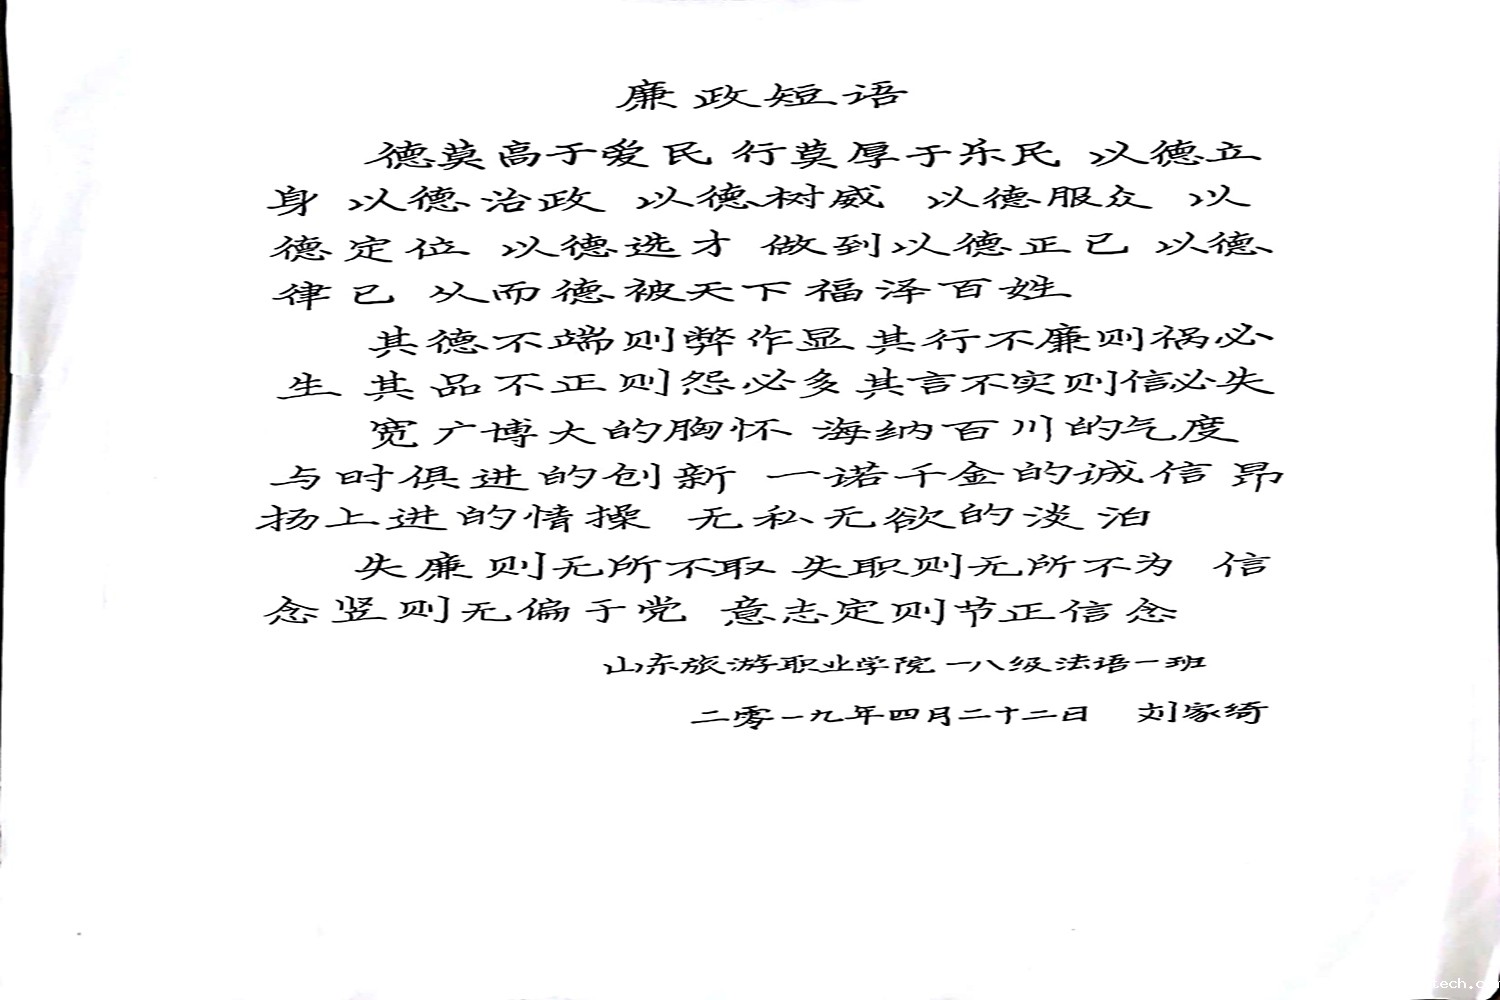 廉政短语
德莫高于爱民 行莫厚于乐民 以德立
身 以德治政 以德树威 以德服众 以
德定位 以德选才 做到以德正己 以德
律己 从而德被天下福泽百姓
其德不端则弊作显 其行不廉则祸必
生 其品不正则怨必多 其言不实则信必失
宽广博大的胸怀 海纳百川的气度
与时俱进的创新 一诺千金的诚信 昂
扬上进的情操 无私无欲的淡泊
失廉则无所不取 失职则无所不为 信
念竖则无偏于党 意志定则节正信念
山东旅游职业学院一八级法语一班
二零一九年四月二十二日 刘家绮
tech.c